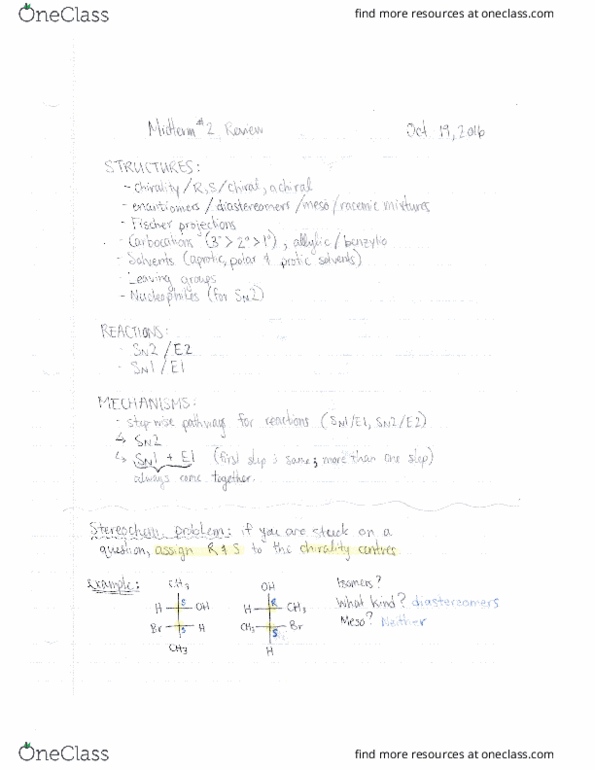 OneClass
find more resources at oneclass.com
Midterm #2 Review
Oct 19, 2016
STRUCTURES:
- chirality / R, S / chiral, achiral
- enantiomers / diastereomers / meso / racemic mixtures
- Fischer projections
- Carbocations (3° > 2° > 1°), allylic / benzylic
- Solvents (aprotic, polar & protic solvents)
- Leaving groups
- Nucleophiles (for SN2)
REACTIONS:
- SN2 / E2
- SN1 / E1
MECHANISMS:
- stepwise pathway for reactions (SN1/E1, SN2/E2)
↳ SN2
↳ SN1 + E1 (first step is same; more than one step)
always come together.
Stereochem problem: if you are stuck on a
question, assign R & S to the chirality centres
Example:
CH3
H S OH
Br S H
CH3
OH
H R CH3
CH3 S Br
H
Isomers?
What kind? diastereomers
Meso? Neither
OneClass
find more resources at oneclass.com